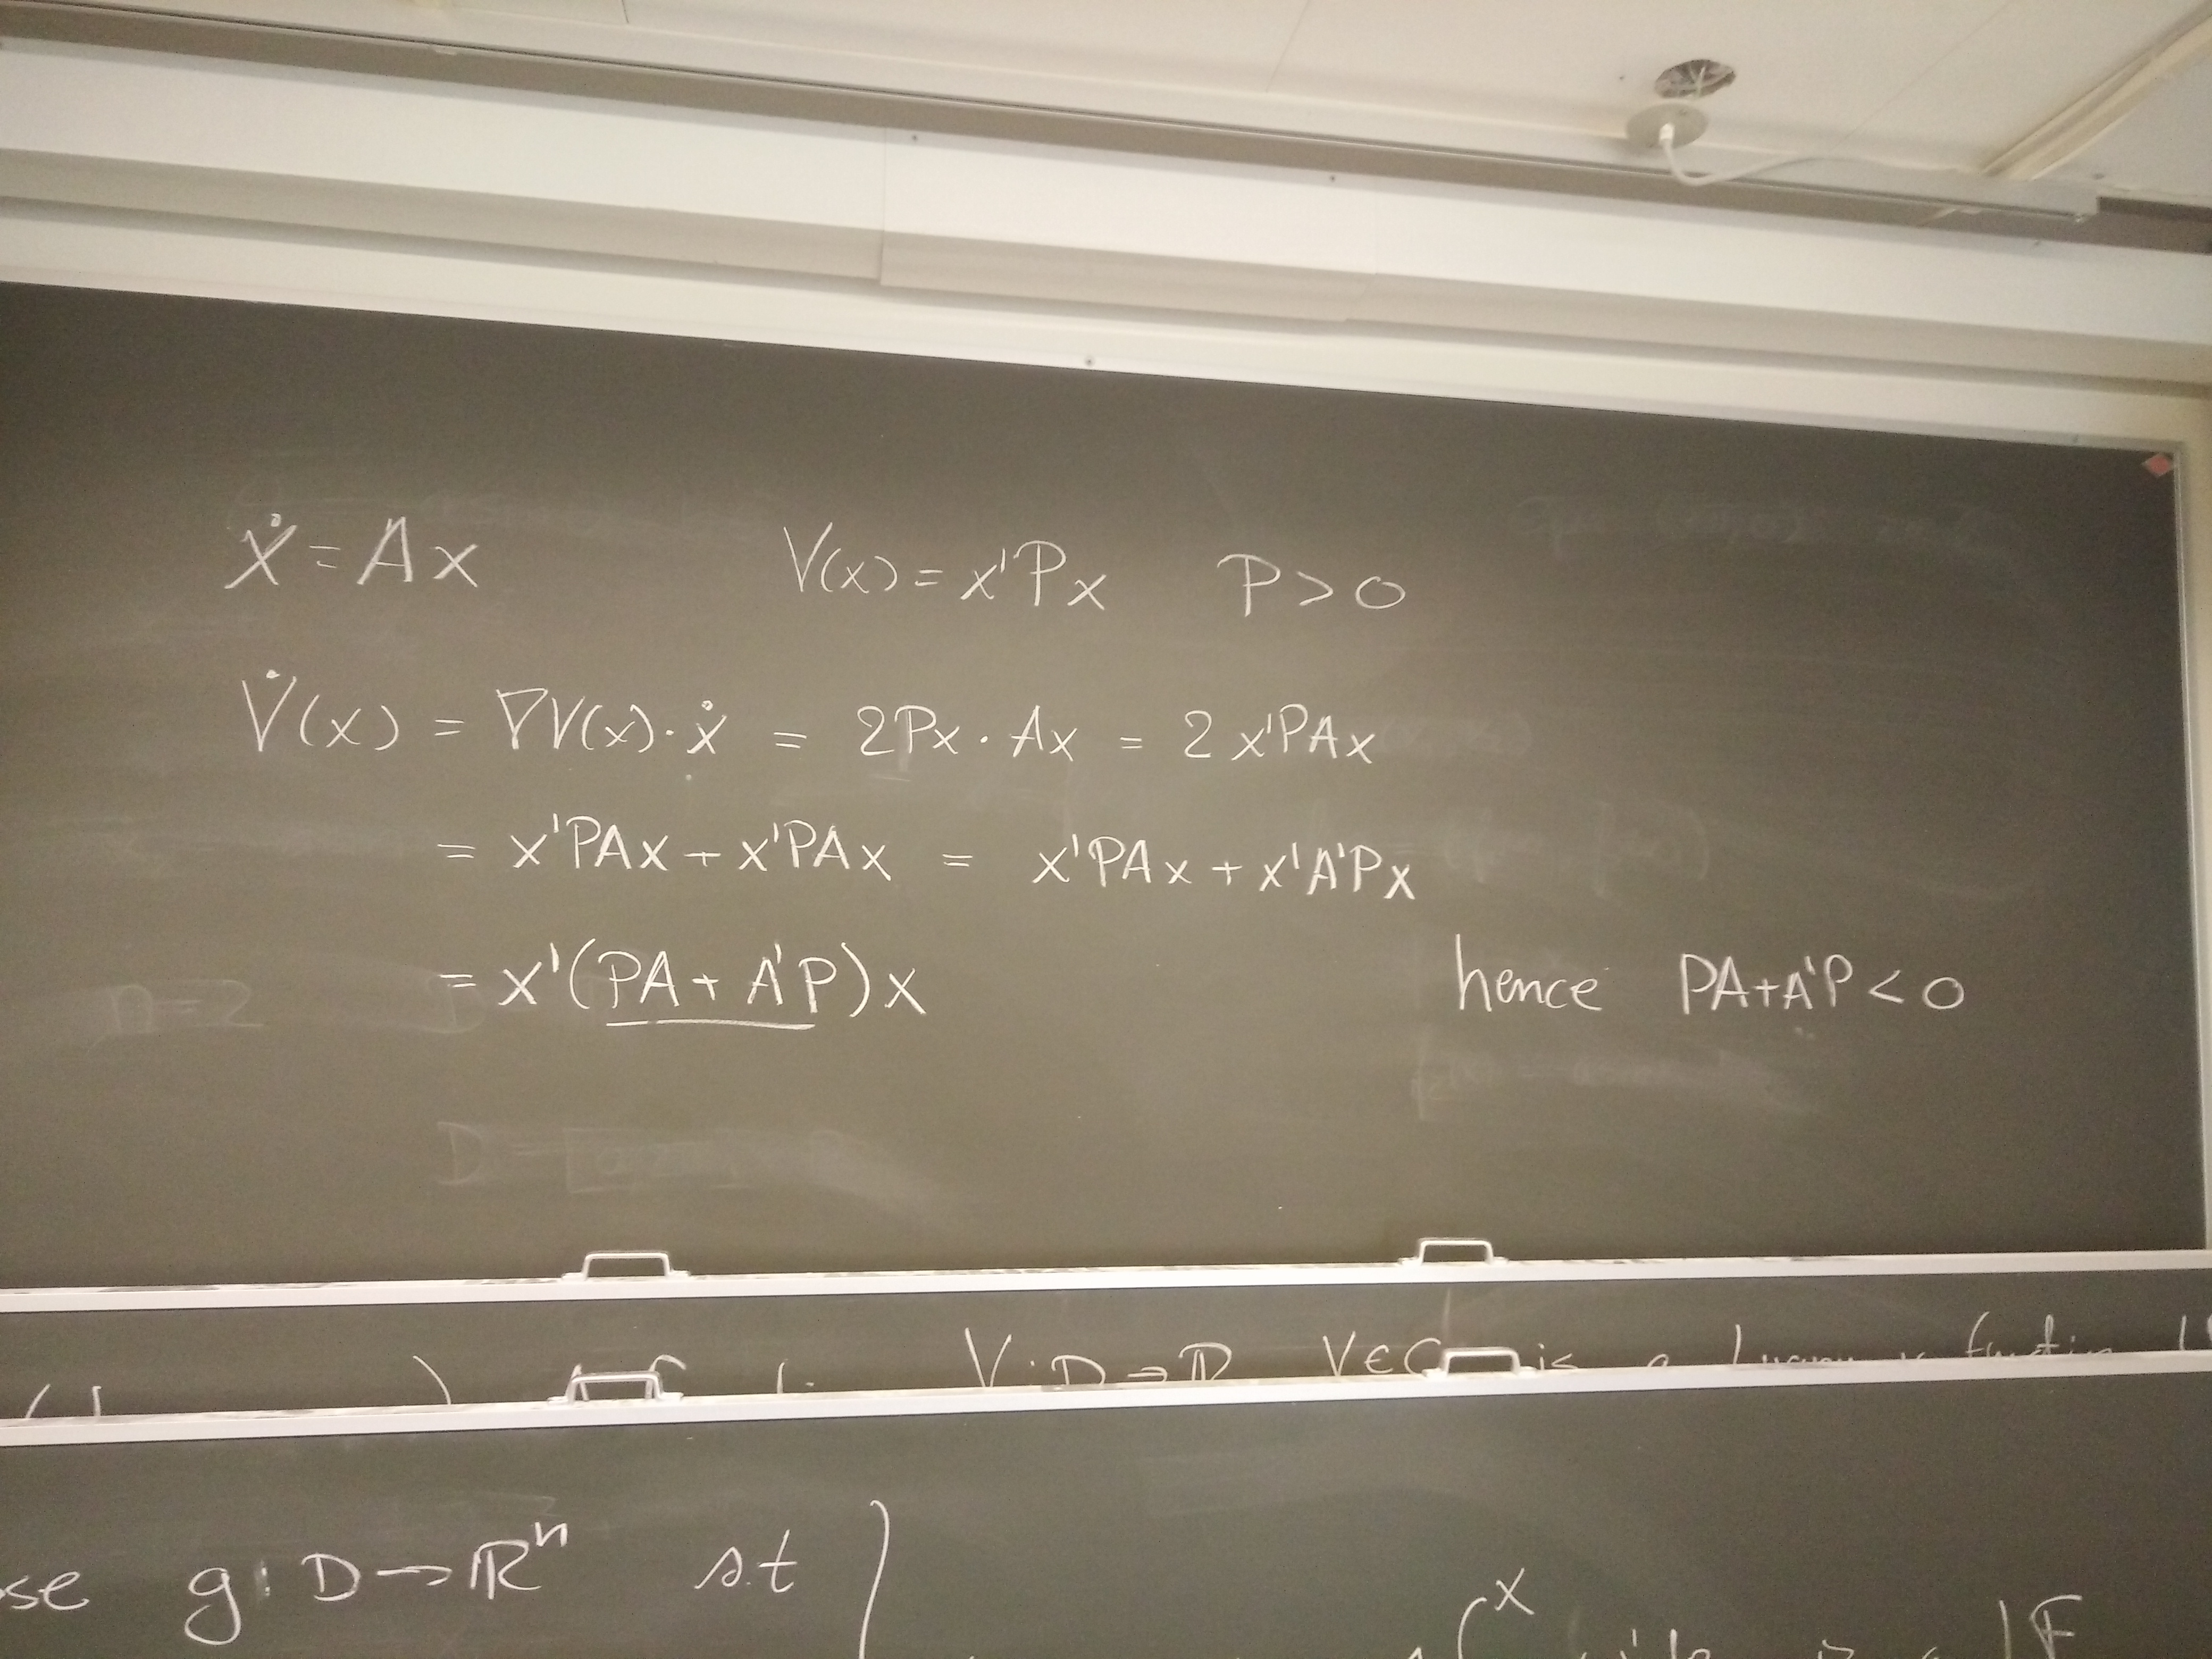 ẋ = Ax V(x) = x'Px P > 0
V̇(x) = ∇V(x)·ẋ = 2Px · Ax = 2x'PAx
= x'PAx + x'PAx = x'PAx + x'A'Px
= x'(PA + A'P)x hence PA+A'P < 0
V: D → ℝ V ∈ C is a function
g: D → ℝⁿ s.t
x